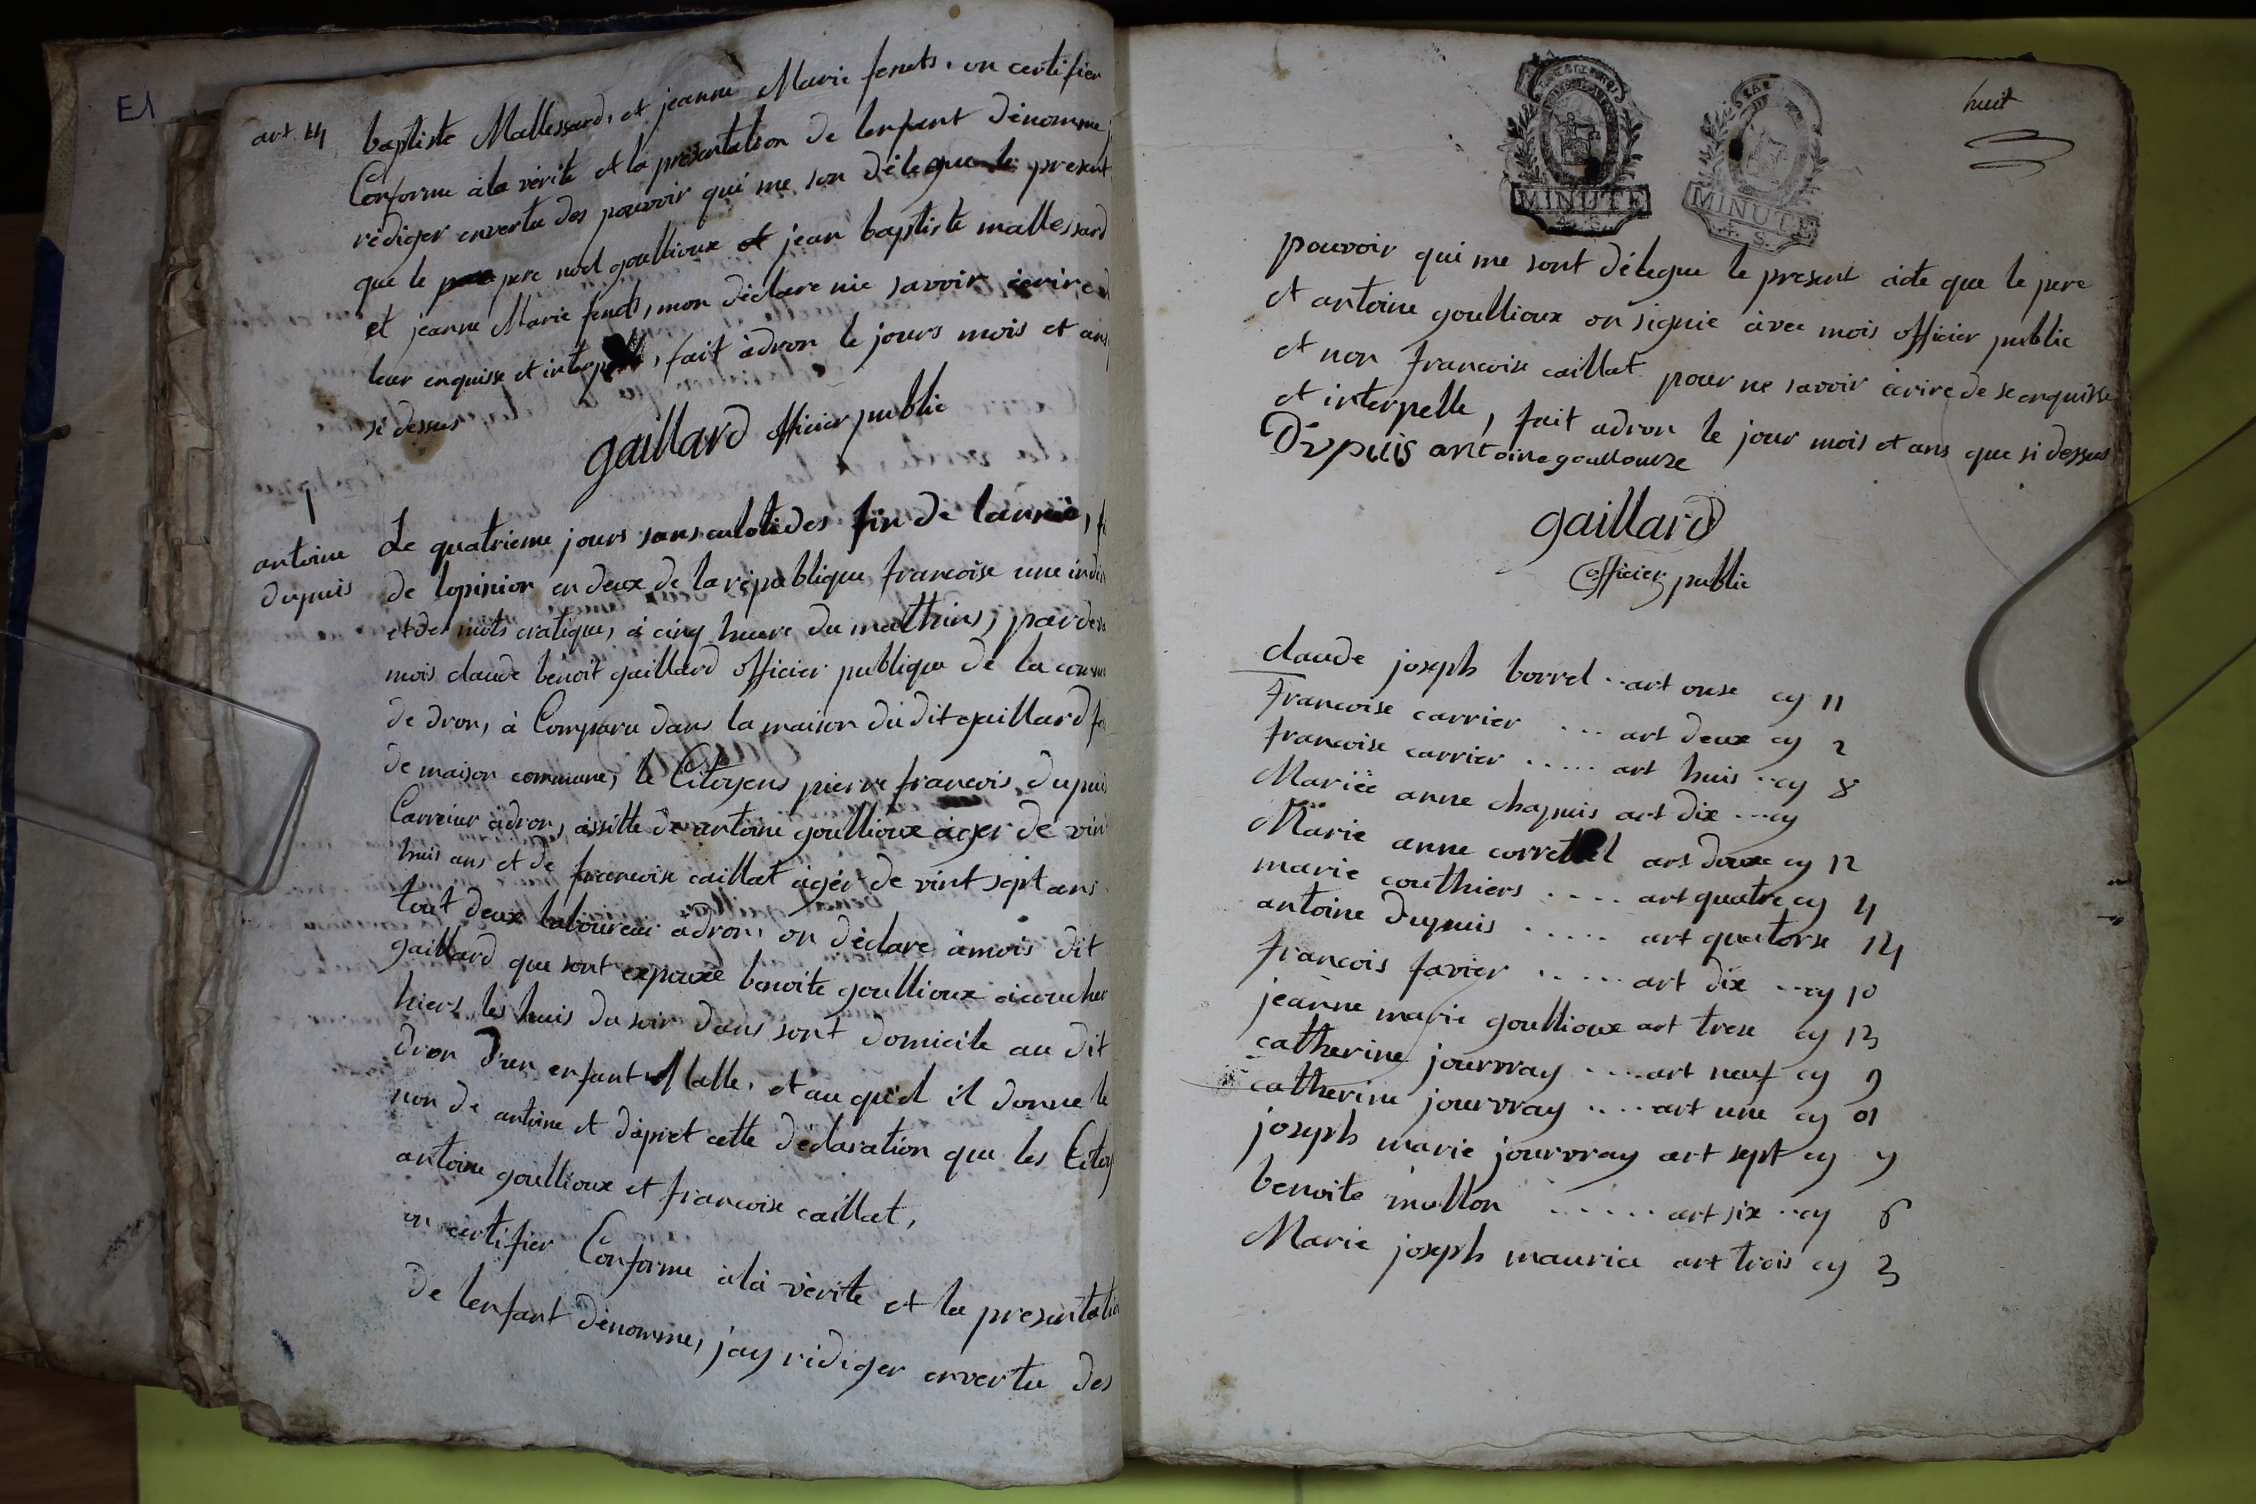 E1
art. 14
baptiste Mallessard, et jeanne Marie fenets, on certifier
Conforme à la vérité et la présentation de lenfant dénomme j
rédiger envertu des pouvoir qui me son délegue le present
que le pere noel goullioux et jean baptiste mallessard
et jeanne Marie fenets, mon déclare nie savoir écrire
leur enquisse et , fait àdron le jours mois et ans
si dessus
gaillard officier public
antoine
dupuis
Le quatrieme jours sansculotides fin de lannée,
de lopinion en deux de la république francoise une indi
et des mots cratique, à cinq heure du matthins, pardev
mois claude benoit gaillard officier publique de la comm
de dron, à Comparu dans la maison du dit gaillard f
de maison commune, le Citoyens pierre francois dupuis
Carreiur àdron, assitte de antoine goullioux àger de vin
huis ans et de francoise caillat àgér de vint sept ans
tout deux laboureur àdron, on déclare àmois dit
gaillard que sont expouxe benoite goullioux àcoucher
hiers les huis du soir dans sont domicile au dit
dron dun enfant Malle, et au quel il donne le
non de antoine et dàpret cette déclaration que les Citoy
antoine goullioux et francoise caillat,
on certifier Conforme àlà vérite et la presentatio
de lenfant dénomme, jay rédiger envertu des
MINUTE
MINUTE
huit
pouvoir qui me sont délegue le present acte que le pere
et antoine goullioux on signie àvec mois officier public
et non francoise caillat pour ne savoir écrire de se enquisse
et interpelle, fait adron le jour mois et ans que si dessus
Dupuis antoine goullouxe
gaillard
officier public
claude joseph borrel .. art onse cy 11
francoise carrier ... art deux cy 2
francoise carrier ..... art huis .. cy 8
Mariée anne chapuis art dix ... cy
Marie anne art douxe cy 12
marie couthiers .... art quatre cy 4
antoine dupuis ..... art quatorse 14
francois favier ..... art dix .. cy 10
jeanne marie goullioux art trese cy 13
catherine jourvray .... art neuf cy 9
catherine jourvray .... art une cy 01
joseph marie jourvray art sept cy 7
benoite mollon ...... art six .. cy 6
Marie joseph maurice art trois cy 3